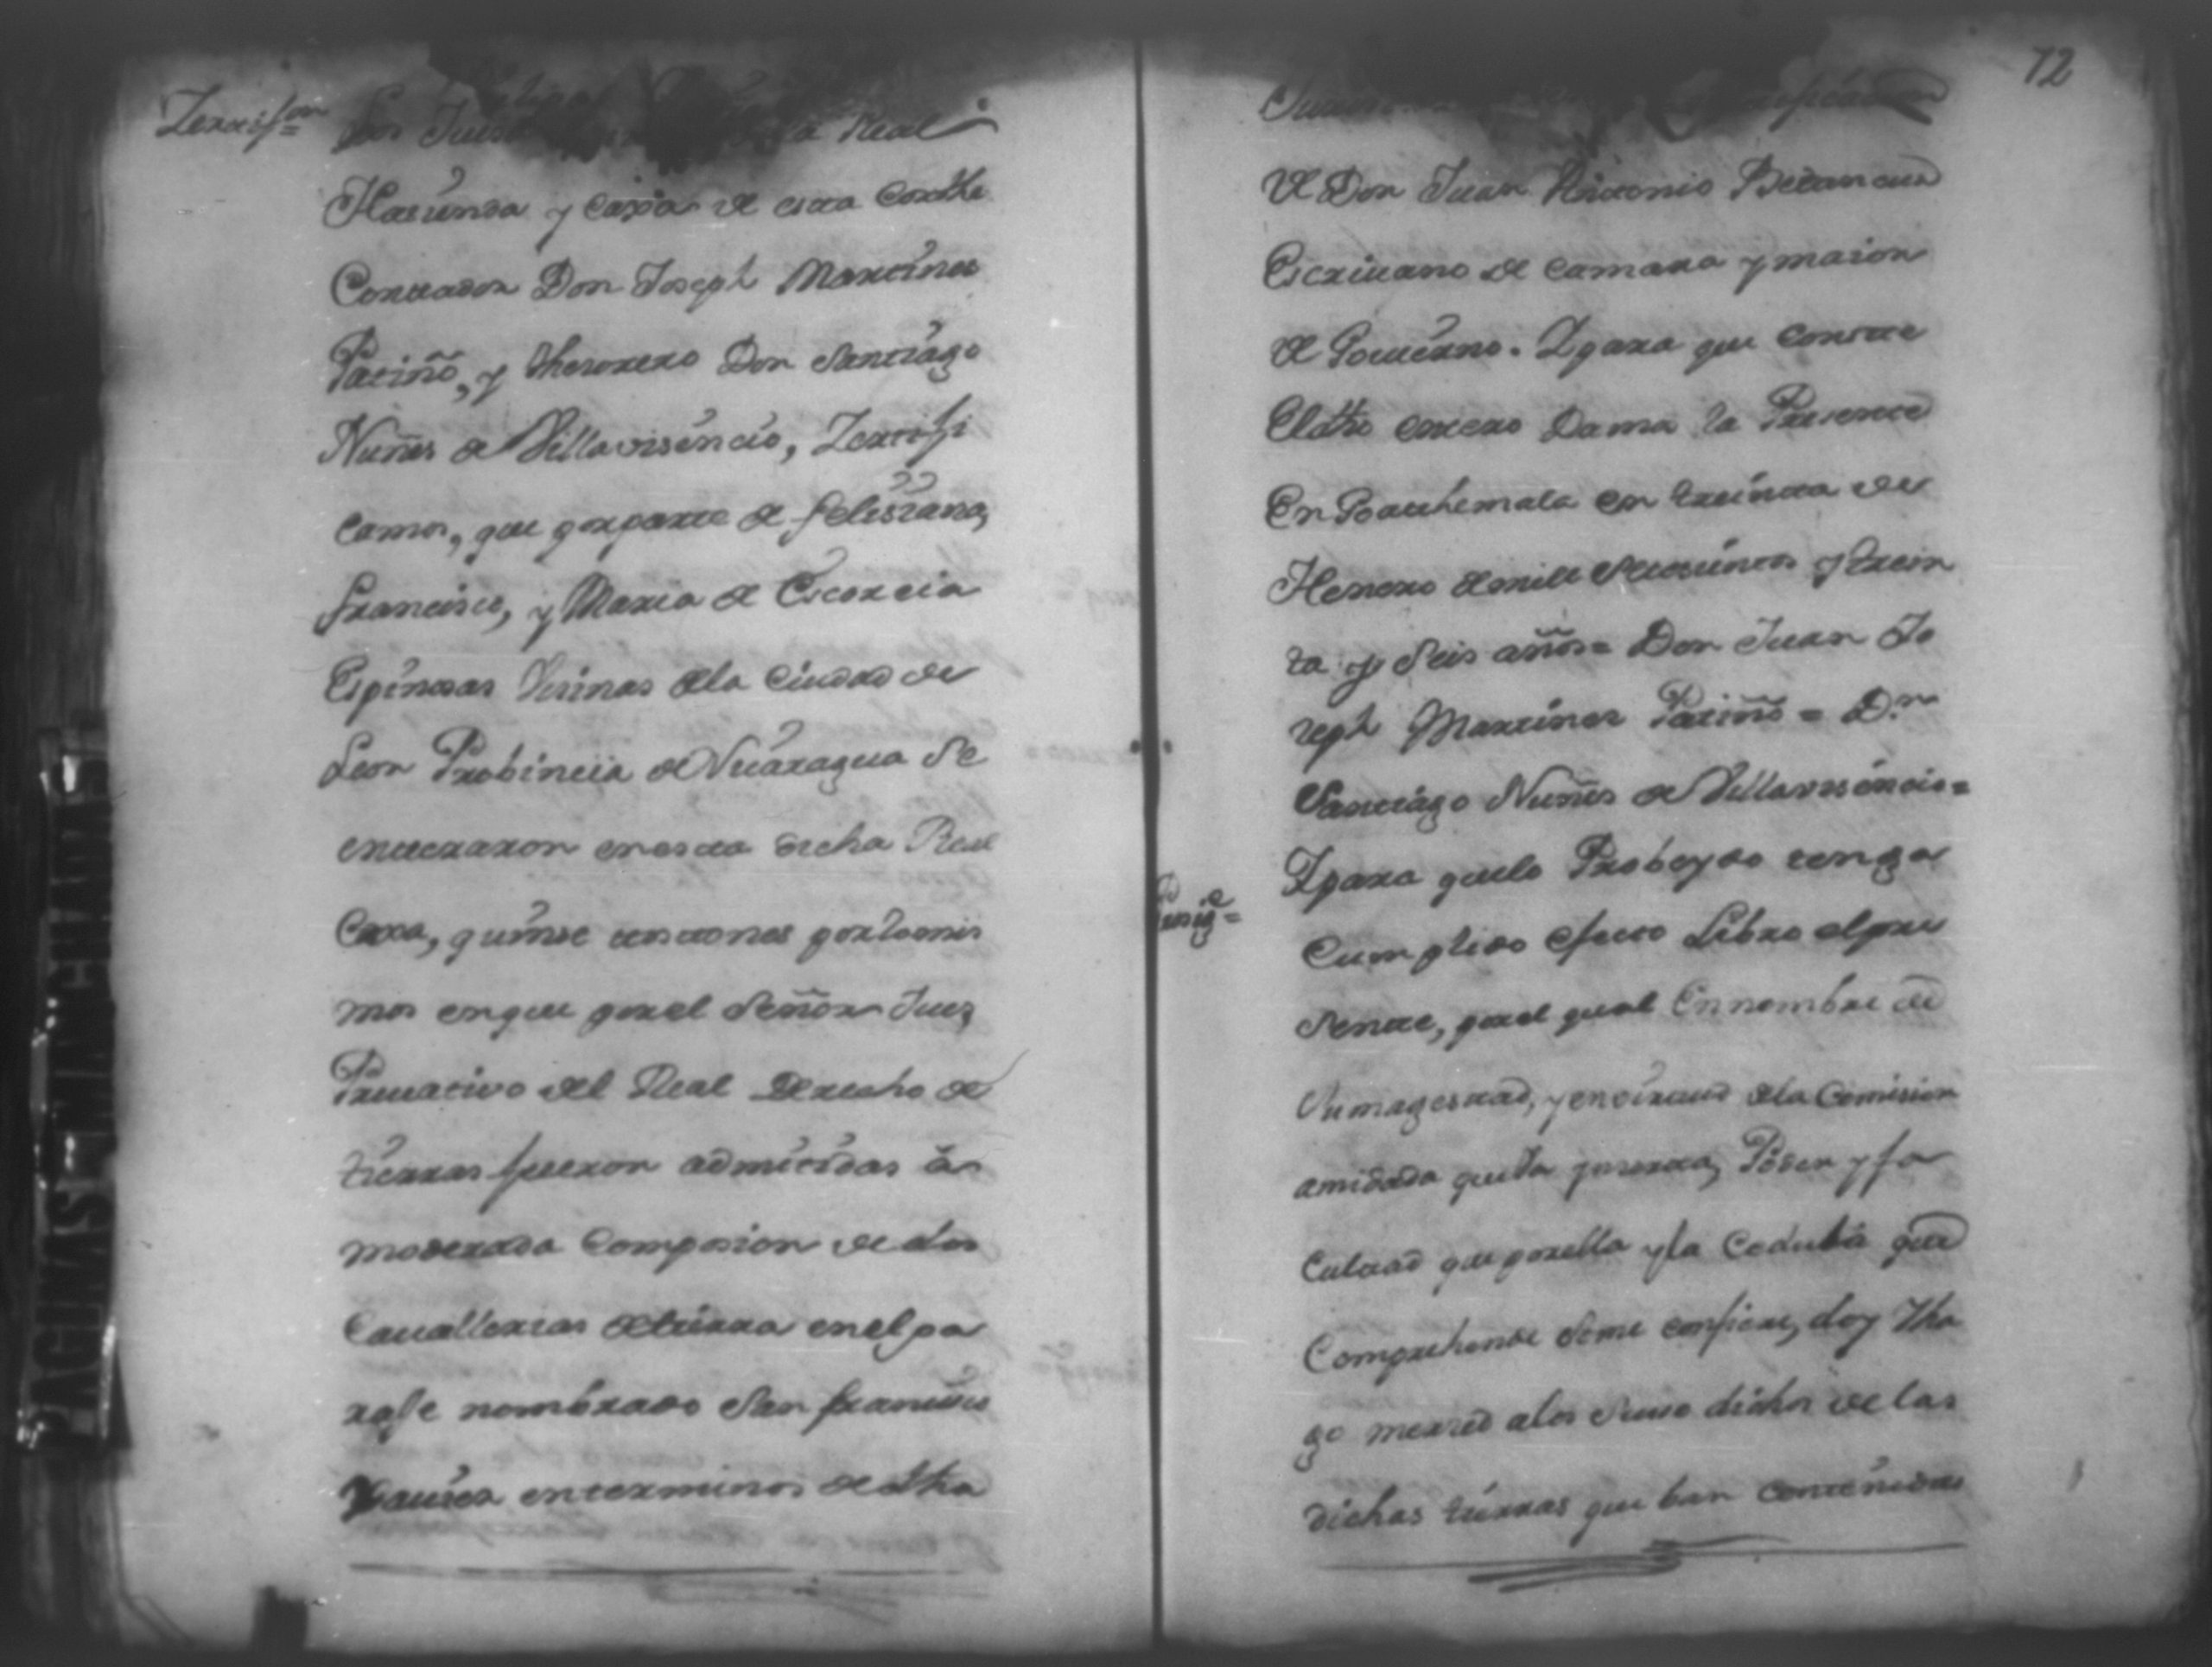 Zertifon
Los Jueses de la Real
Hasienda y Caxa de esta Corthe
Contador Don Joseph Martines
Patiño, y thesorero Don Santiago
Nuñes de Villavisencio, Zertifi
camos, que por parte de Felisiana,
Francisco, y Maria de Escorcia
Espinosas Vesinas dela Ciudad de
Leon Probincia de Nicaragua Se
enteraron en esta dicha Real
Caxa, quinse tostones por los mis
mos en que por el Señor Juez
Privativo del Real Derecho de
tierras fueron admitidas â
moderada Composion de dos
Cavallerias de tierra en el pa
raje nombrado San Francisco
Xavier en terminos de dha
72
de Don Juan Antonio Betancur
Escrivano de Camara y maior
de Govierno. Y para que Conste
El dho entero Damos la Presente
En Goathemala en treinta de
Henero de mill Setesientos y trein
ta y Seis años = Don Juan Jo
seph Martines Patiño = Dn
Santiago Nuñes de Villavisencio =
Prosige =
Y para que lo Probeydo tenga
Cumplido efecto Libro el pre
Sente, por el qual En nombre de
Su magestad, y en virtud de la Comision
a mi dada que ba ynserta, Poder y fa
Cultad que por ella y la Cedula que
Comprehende Se me confiere, doy Y ha
go merced a los Suso dichos de las
dichas tierras que ban contenidas